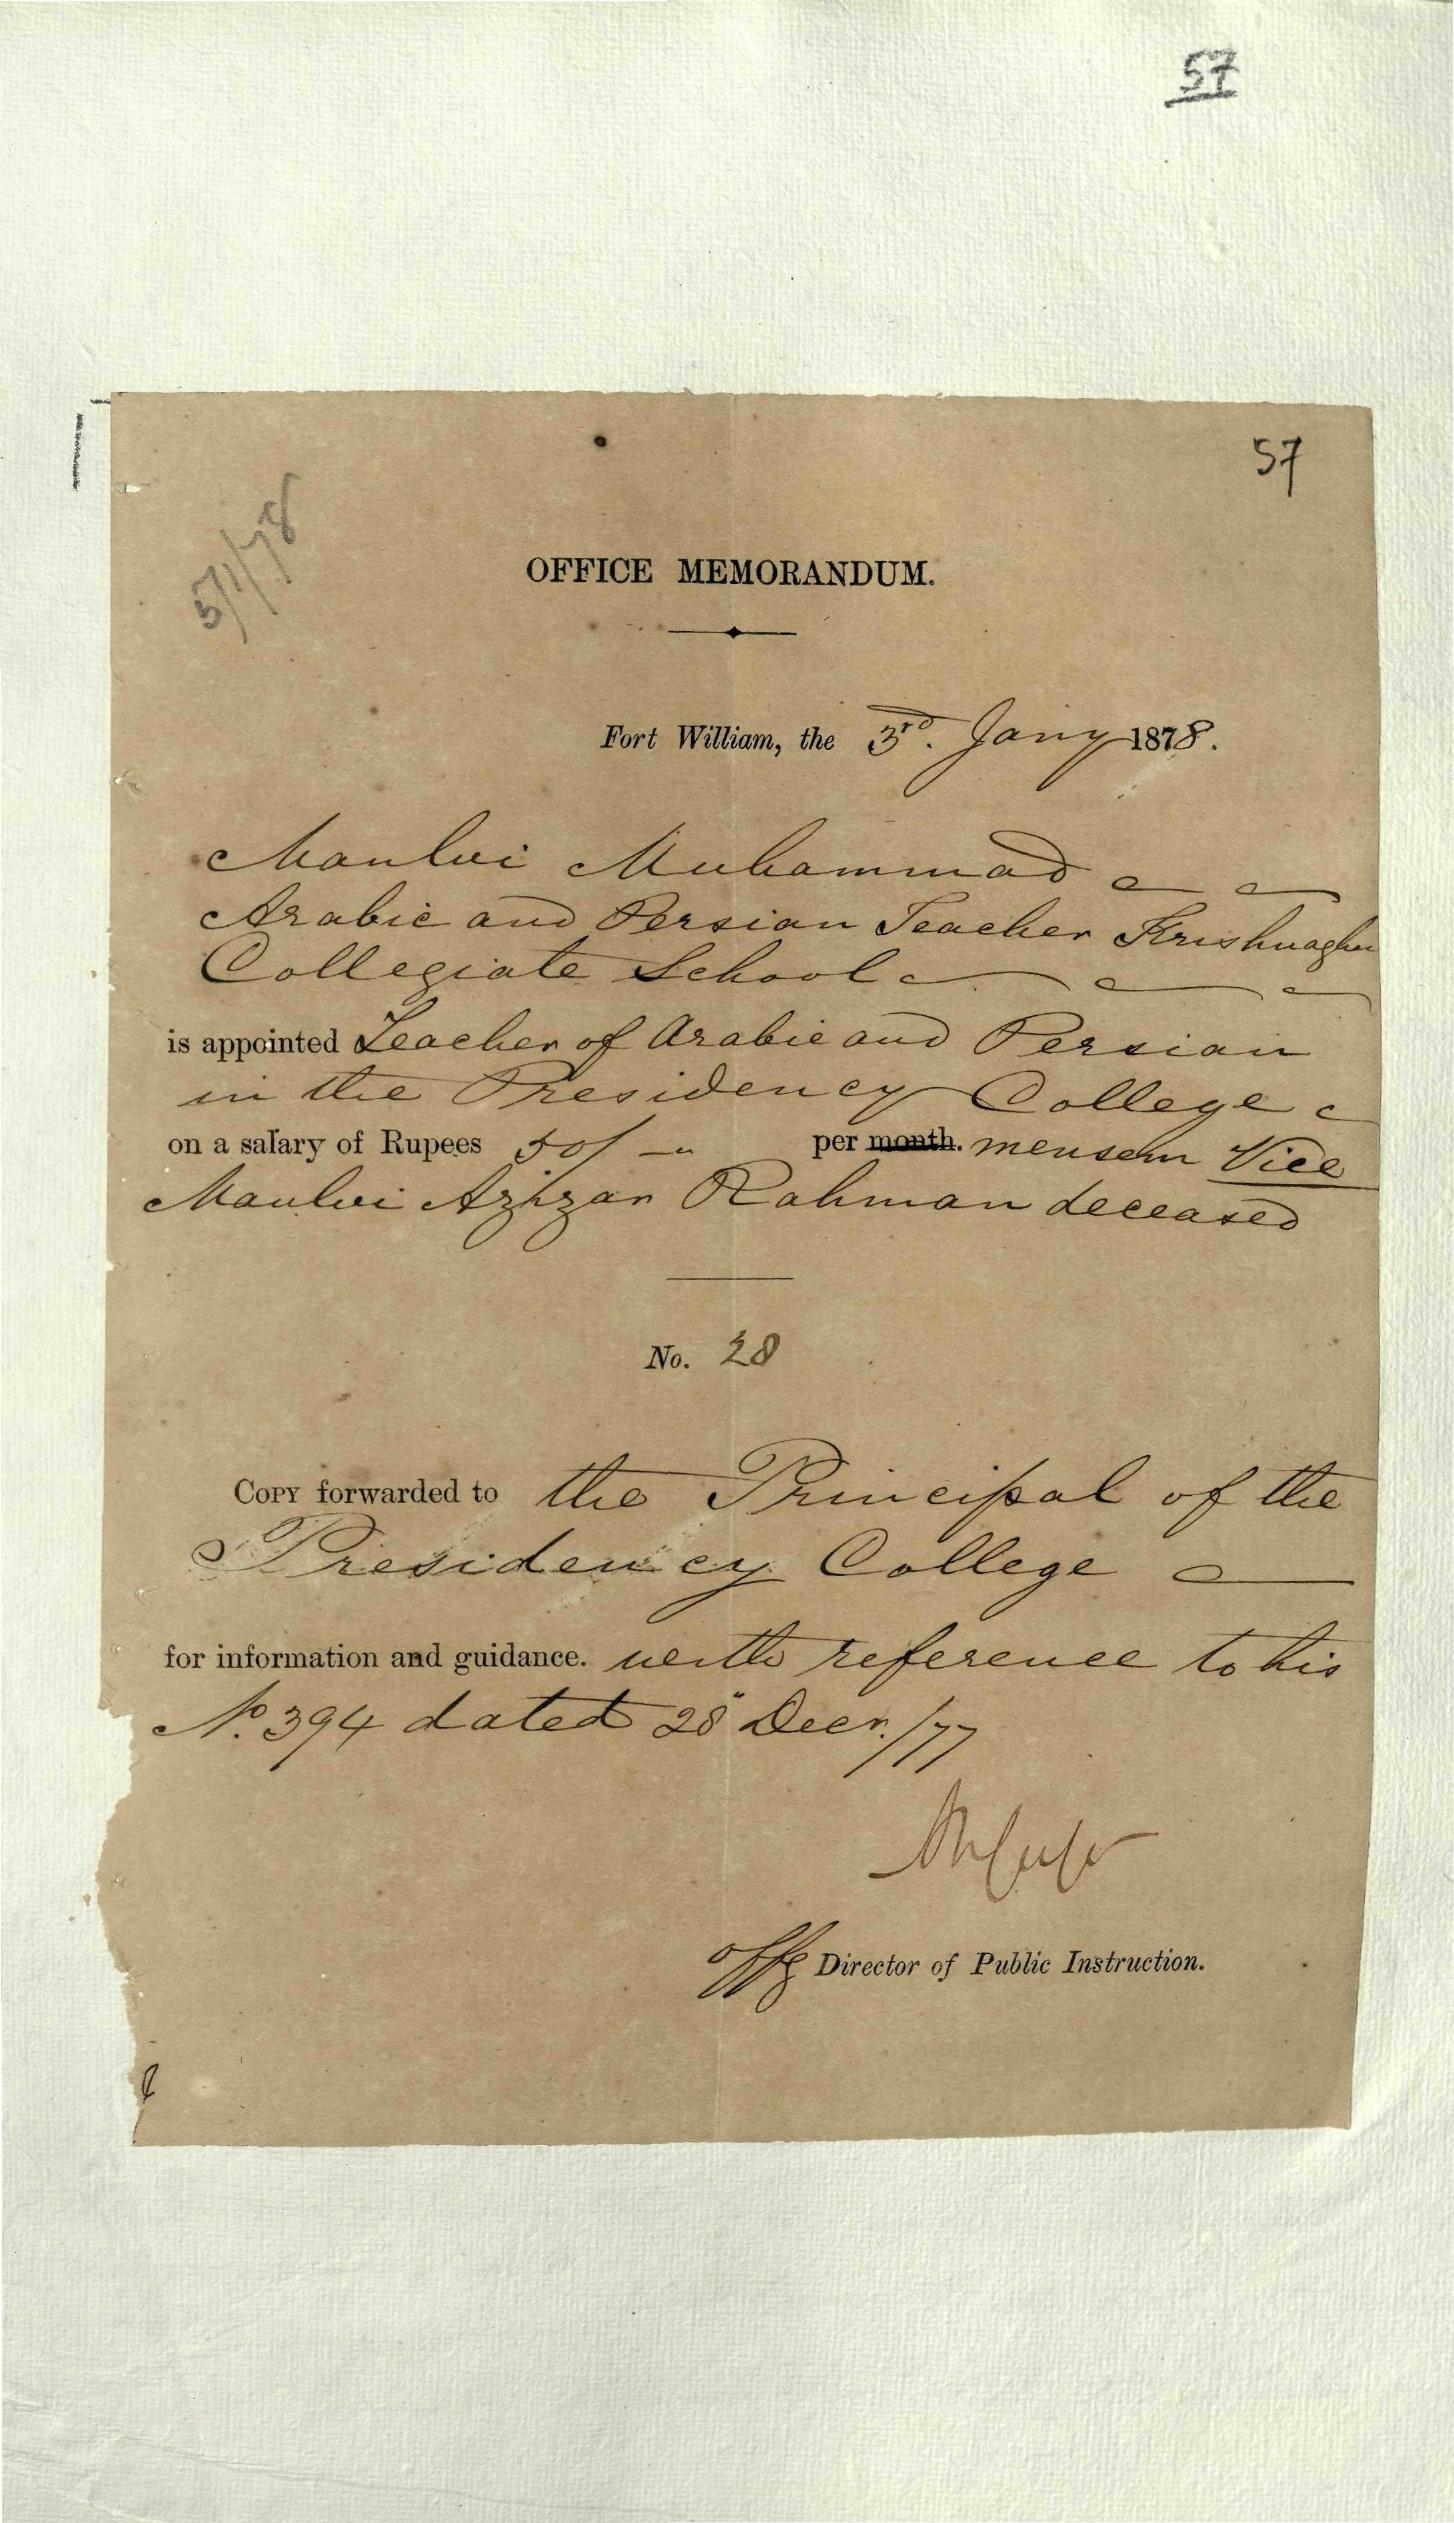 57
57
5/1/78
OFFICE MEMORANDUM.
Fort William, the 3rd. Jany 1878.
Maulvi Muhammad
Arabic and Persian Teacher Krishnaghur
Collegiate School
is appointed Teacher of Arabic and Persian
in the Presidency College
on a salary of Rupees 50/- per month. mensem Vice
Maulvi Azizar Rahman deceased
No. 28
COPY forwarded to the Principal of the
Presidency College
for information and guidance. with reference to his
No. 394 dated 28" Decr./77
Offg Director of Public Instruction.